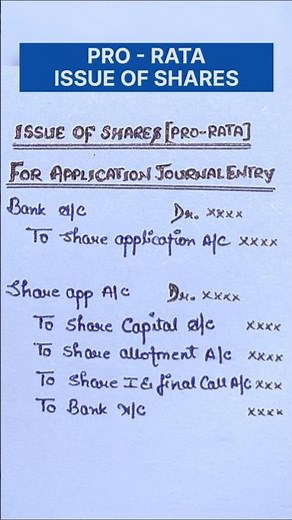 PRO - RATA
ISSUE OF SHARES
ISSUE OF SHARES [PRO-RATA]
FOR APPLICATION JOURNAL ENTRY
Bank A/c Dr. xxxx
To Share application A/c xxxx
Share app A/c Dr. xxxx
To Share Capital A/c xxxx
To Share allotment A/c xxxx
To Share I & final Call A/c xxx
To Bank A/c xxxx